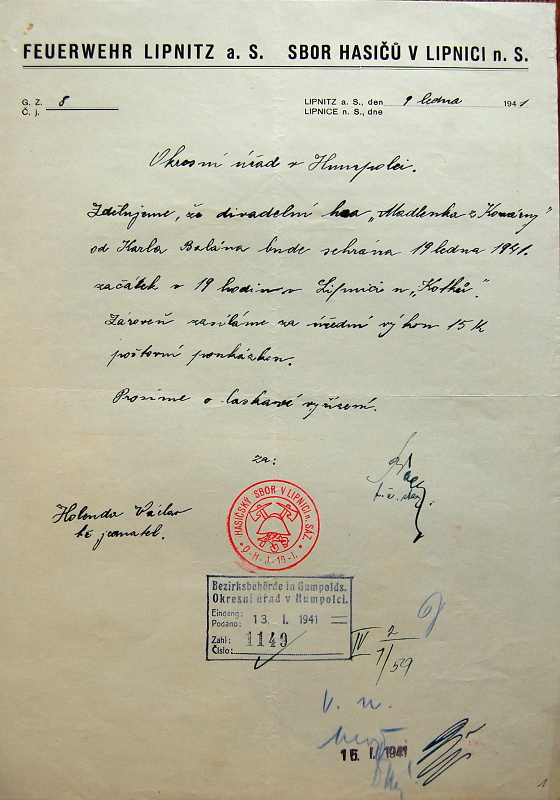 FEUERWEHR LIPNITZ a. S. SBOR HASIČŮ V LIPNICI n. S.
G. Z. 8
Č. j.
LIPNITZ a. S., den 9 ledna 1941
LIPNICE n. S., dne
Okresní úřad v Humpolci.
Zdělujeme, že divadelní hra „Madlenka z Kovárny"
od Karla Balána bude sehrána 19 ledna 1941.
začátek v 19 hodin v Lipnici u „Kotků".
Zároveň zasíláme za úřední výkon 15 K
poštovní poukázkou.
Prosíme o laskavé vyřízení.
za:
t. č. star.
Holenda Václav
tč jednatel.
HASIČSKÝ SBOR V LIPNICI n. SÁZ.
O-H-J-15-I.
Bezirksbehörde in Gumpolds.
Okresní úřad v Humpolci.
Eingang:
Podáno: 13. I. 1941
Zahl: 1149
Číslo:
IV 2
7/59
V. n.
16. I. 1941
1